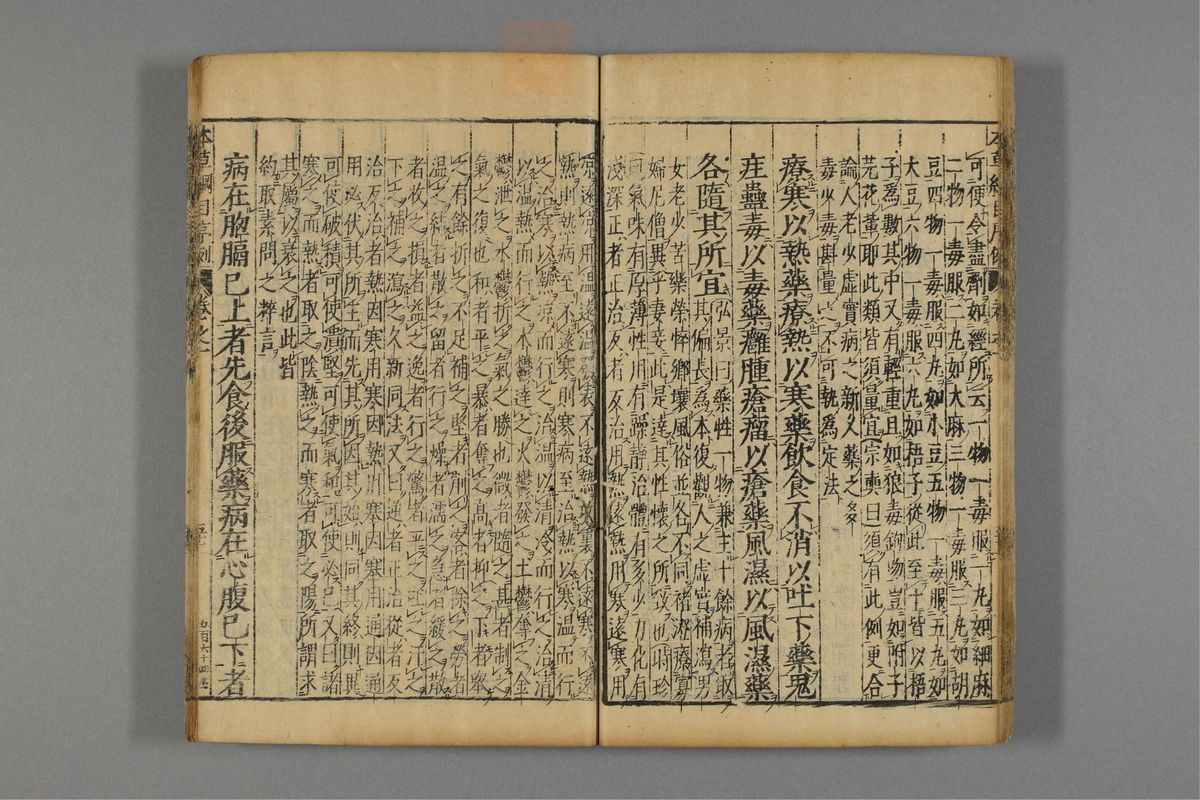 可便令盡劑如經所云一物一毒服一丸如細麻
二物一毒服二丸如大麻三物一毒服三丸如胡
豆四物一毒服四丸如小豆五物一毒服五丸如
大豆六物一毒服六丸如梧子從此至十皆以梧
子爲數其中又有輕重且如狼毒鉤吻豈如附子
芫花輩耶此類皆須量宜宗奭曰須有此例更合
論人老少虛實病之新久藥之多
毒少毒斟量之不可執爲定法
療寒以熱藥療熱以寒藥飲食不消以吐下藥鬼
疰蠱毒以毒藥癰腫瘡瘤以瘡藥風濕以風濕藥
各隨其所宜弘景曰藥性一物兼主十餘病者取
其偏長爲本復觀人之虛實補瀉男
女老少苦樂榮悴鄉壤風俗並各不同褚澄療寡
婦尼僧異乎妻妾此是達其性懷之所致也時珍
曰氣味有厚薄性用有躁靜治體有多少力化有
淺深正者正治反者反治用熱遠熱用寒遠寒用
涼遠涼用溫遠溫發表不遠熱攻裏不遠寒不遠
熱則熱病至不遠寒則寒病至治熱以寒溫而行
之治寒以熱涼而行之治溫以清冷而行之治清
以溫熱而行之木鬱達之火鬱發之土鬱奪之金
鬱泄之水鬱折之氣之勝也微者隨之甚者制之
氣之復也和者平之暴者奪之高者抑之下者舉
之有餘折之不足補之堅者削之客者除之勞者
溫之結者散之留者行之燥者濡之急者緩之散
者收之損者益之逸者行之驚者平之吐之汗之
下之補之瀉之久新同法又曰逆者正治從者反
治反治者熱因寒用寒因熱用塞因塞用通因通
用必伏其所主而先其所因其始則同其終則異
可使破積可使潰堅可使氣和可使必已又曰諸
寒之而熱者取之陰熱之而寒者取之陽所謂求
其屬以衰之也此皆
約取素問之粹言
病在胸膈已上者先食後服藥病在心腹已下者
本草綱目序例 卷之一